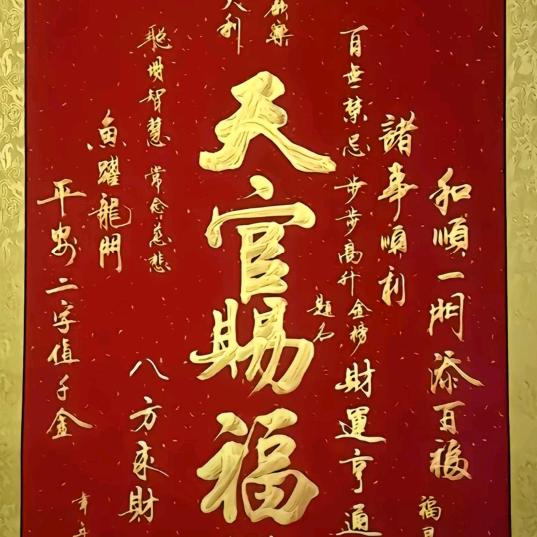 和順一門添百福
福
諸事順利
百無禁忌 步步高升 金榜
題名
財運亨通
天官賜福
大利
聰明智慧 常念慈悲
八方來財
魚躍龍門
平安二字值千金